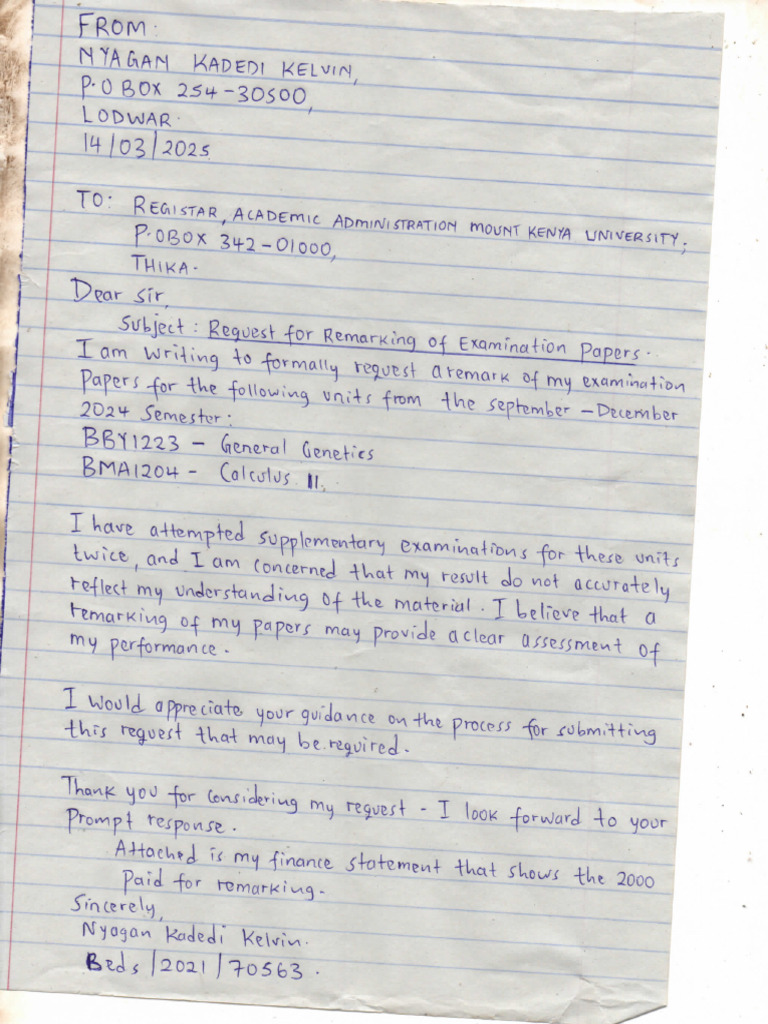 FROM:
NYAGAN KADEDI KELVIN,
P.O BOX 254-30500,
LODWAR.
14/03/2025
TO: REGISTAR, ACADEMIC ADMINISTRATION MOUNT KENYA UNIVERSITY;
P.OBOX 342-01000,
THIKA.
Dear Sir,
Subject: Request for Remarking of Examination Papers.
I am writing to formally request a remark of my examination
Papers for the following units from the september - December
2024 Semester:
BBY1223 - General Genetics
BMA1204 - Calculus II.
I have attempted supplementary examinations for these units
twice, and I am concerned that my result do not accurately
reflect my understanding of the material. I believe that a
remarking of my papers may provide a clear assessment of
my performance.
I would appreciate your guidance on the process for submitting
this request that may be required.
Thank you for considering my request - I look forward to your
Prompt response.
Attached is my finance statement that shows the 2000
paid for remarking.
Sincerely,
Nyagan Kadedi Kelvin.
Beds/2021/70563.